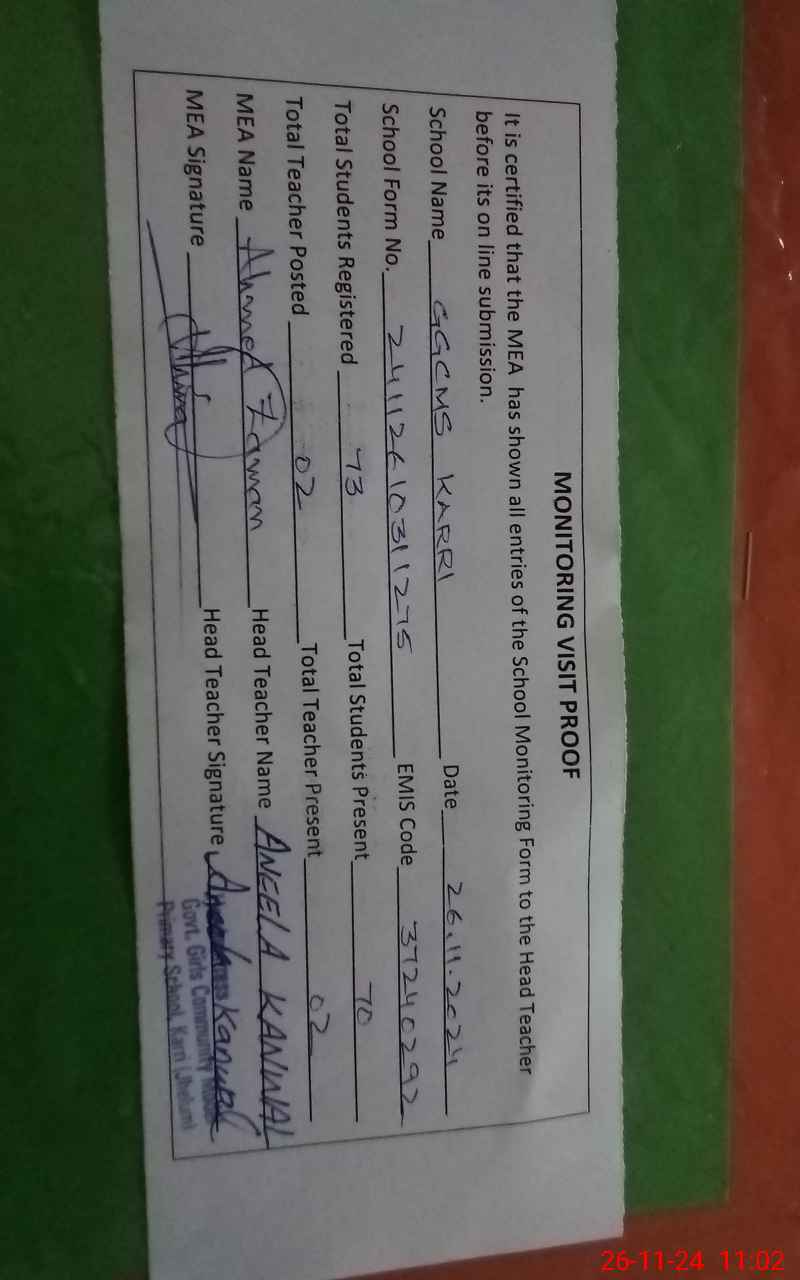 MONITORING VISIT PROOF
It is certified that the MEA has shown all entries of the School Monitoring Form to the Head Teacher
before its on line submission.
School Name GGCMS KARRI Date 26.11.2024
School Form No. 24112610311275 EMIS Code 37240292
Total Students Registered 73 Total Students Present 70
Total Teacher Posted 02 Total Teacher Present 02
MEA Name Ahmed Zaman Head Teacher Name ANEELA KANWAL
MEA Signature Head Teacher Signature Aneela Kanwal
Govt. Girls Community Model
Primary School, Karri (Jhelum)
26-11-24 11:02